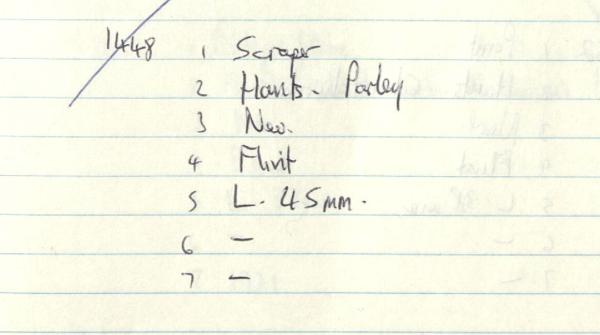 1448 1 Scraper
2 Hants. Parley
3 Neo.
4 Flint
5 L. 45mm.
6 –
7 –